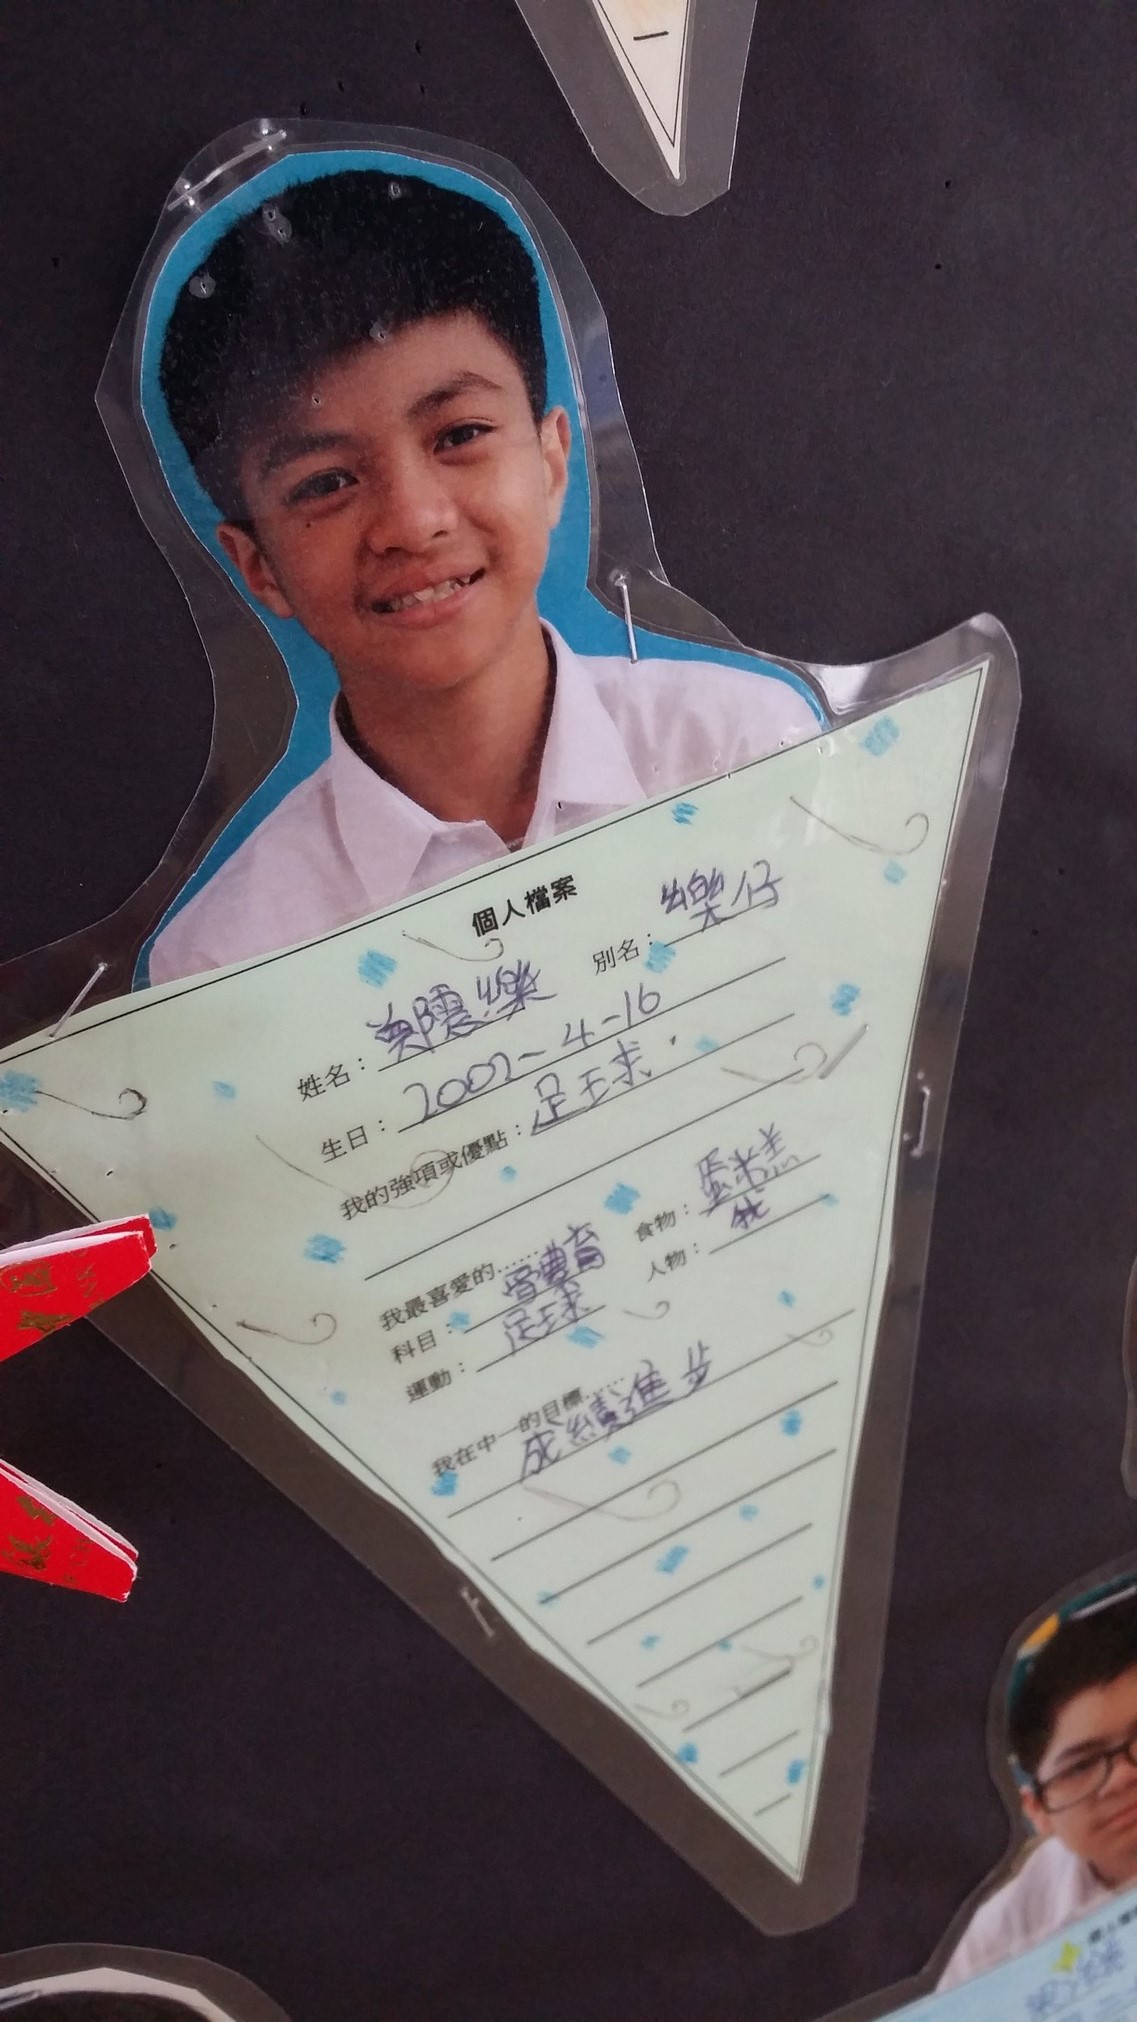 一
個人檔案
姓名：鄭震樂 別名：樂仔
生日：2002-4-16
我的強項或優點：足球．
我最喜愛的……
科目：體育 食物：蛋糕
運動：足球 人物：我
我在中一的目標……
成績進步